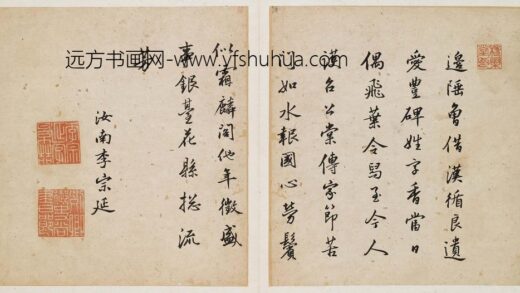 邊陲曾借漢循良遺
愛豐碑姓字香當日
偶飛葉令舄至今人
滿召公棠傳家節苦
如水報國心勞鬢
似霜麟閣他年徵盛
事銀臺花縣總流
芳
汝南李宗延
远方书画网-www.yfshuhua.com